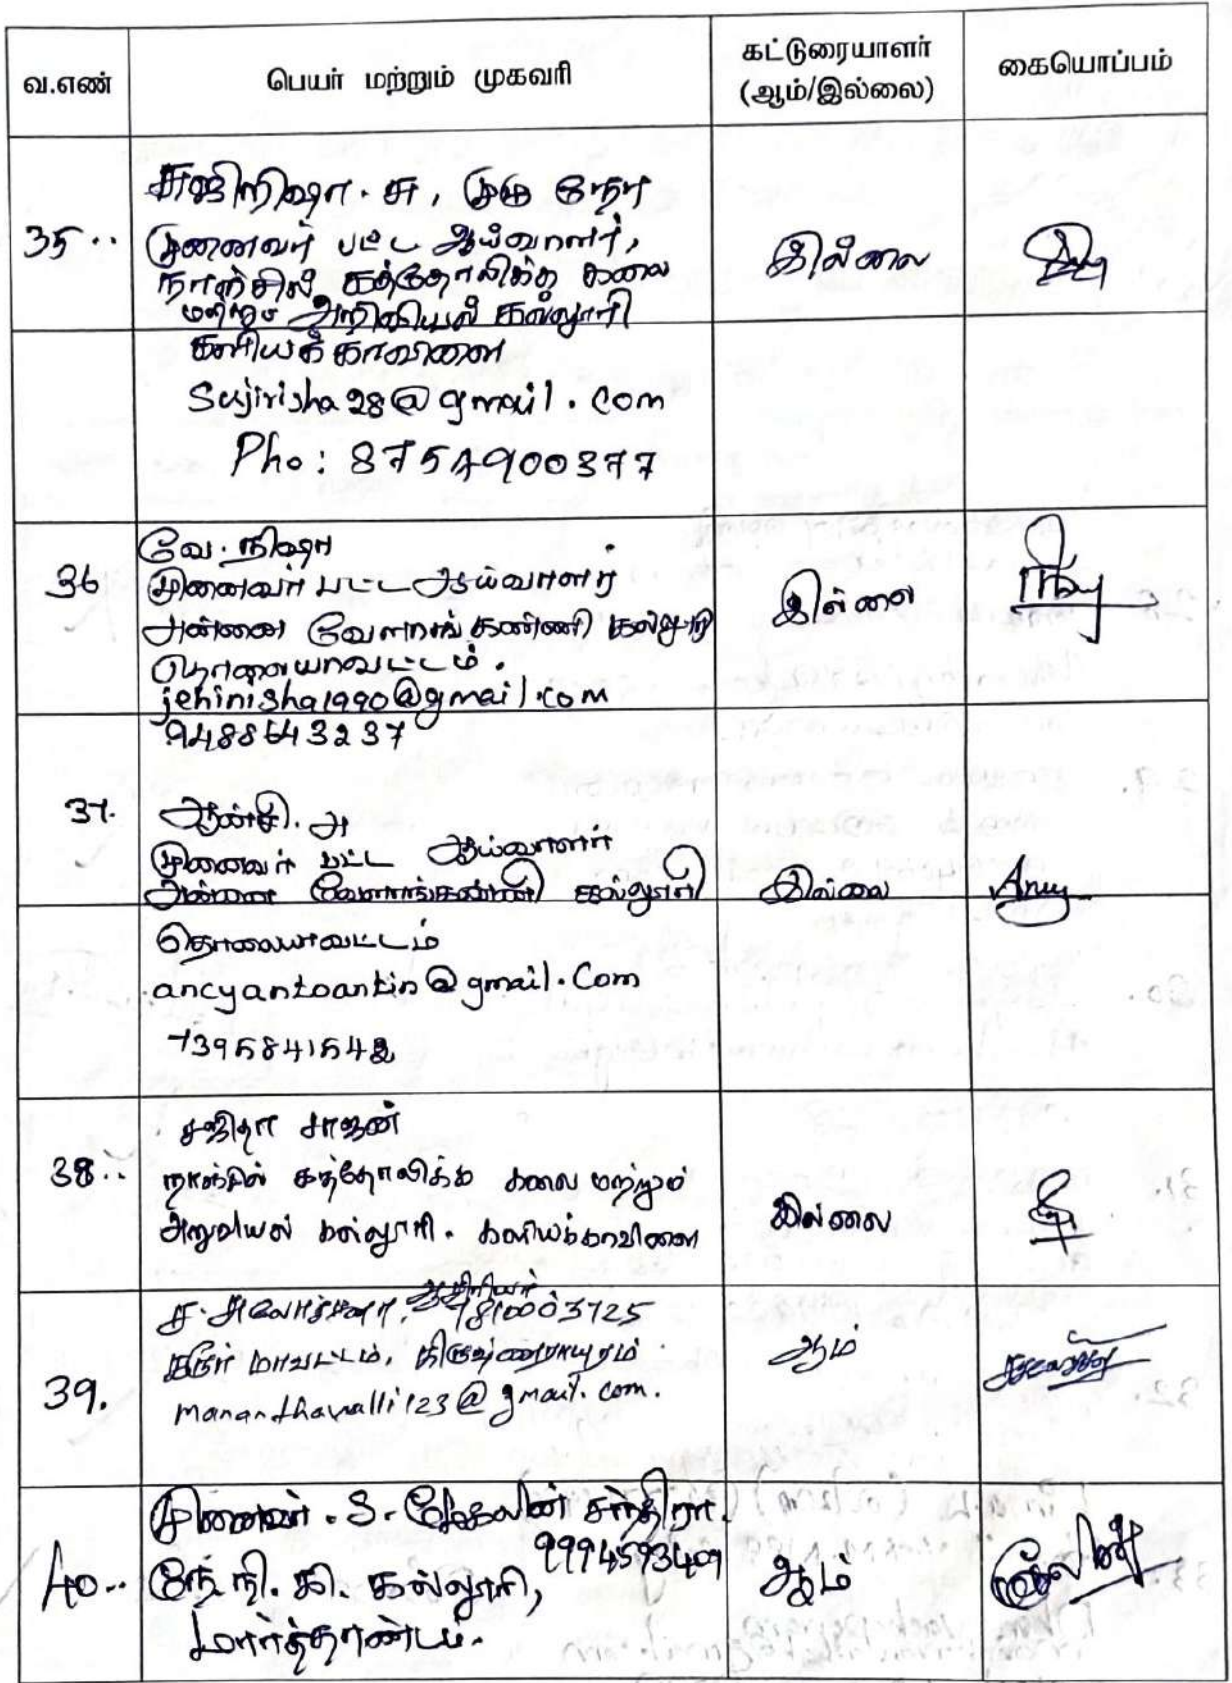 வ.எண்
பெயர் மற்றும் முகவரி
கட்டுரையாளர்
(ஆம்/இல்லை)
கையொப்பம்
35..
சுஜிரிஷா. சு, முழு நேர
முனைவர் பட்ட ஆய்வாளர்,
நாஞ்சில் கத்தோலிக்க கலை
மற்றும் அறிவியல் கல்லூரி
களியக்காவிளை
Sujirisha28@gmail.com
Pho: 8754900377
இல்லை
36
வே. நிஷா
முனைவர் பட்ட ஆய்வாளர்
அன்னை வேளாங்கண்ணி கல்லூரி
தொலையாவட்டம்.
jehinisha1990@gmail.com
9488543237
இல்லை
37.
ஆன்சி. அ
முனைவர் பட்ட ஆய்வாளர்
அன்னை வேளாங்கண்ணி கல்லூரி
தொலையாவட்டம்
ancyantoantin@gmail.com
7395841542
இல்லை
Ancy
38..
சஜிதா சாஜன்
நாஞ்சில் கத்தோலிக்க கலை மற்றும்
அறுவியல் கல்லூரி. களியக்காவிளை
இல்லை
39.
ச. சுலோச்சனா, ஆசிரியர்
9810003725
கரூர் மாவட்டம், கிருஷ்ணராயபுரம்
mananthavalli123@gmail.com.
ஆம்
40..
முனைவர். S. ஜேக்கலின் சந்திரா.
9994593409
நே. நி. கி. கல்லூரி,
மார்த்தாண்டம்.
ஆம்